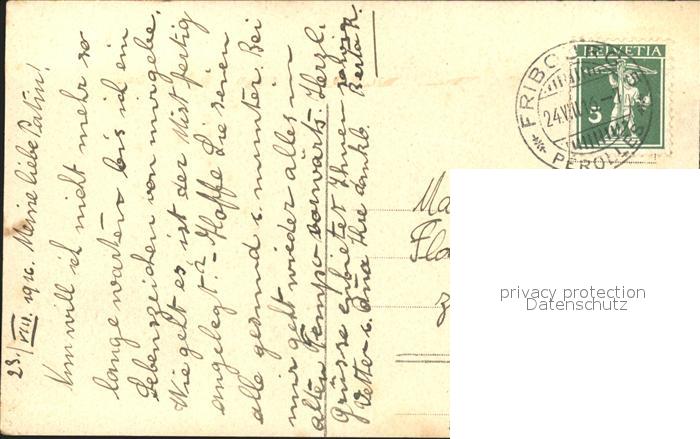 23./VIII. 1916. Meine liebe Patin!
Nun will ich nicht mehr so
lange warten bis ich ein
Lebenszeichen von mir gebe.
Wie geht es, ist der Mist fertig
angelegt? - Hoffe Sie seien
alle gesund u. munter. Bei
mir geht wieder alles im
alten Tempo vorwärts. Herzl.
Grüsse entbietet Ihnen sowie
Vetter u. Ihre dankb. Berta K.
HELVETIA
5
FRIBOURG
24.VIII.16
PEROLLES
Ma
Flo
Z
privacy protection
Datenschutz